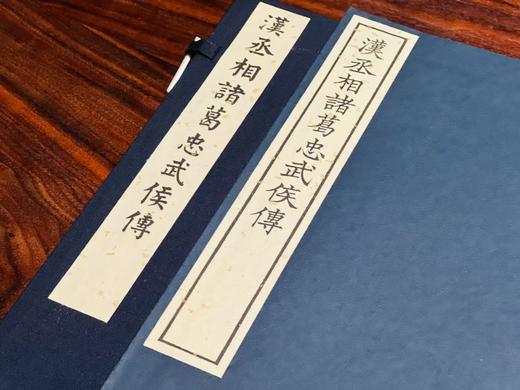 漢丞相諸葛忠武侯傳
漢丞相諸葛忠武侯傳